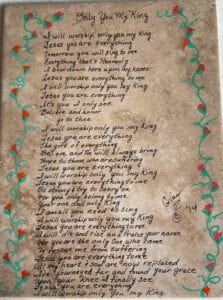 Only You My King
I will worship only you my King
Jesus you are everything
Tomorrow you will sing to me
Everything that's Heavenly
I bow down here upon my knees
Jesus you are everything to me
I will worship only you my King
Jesus you are everything
It's you I only see
Believe and honor
go to thee
I will worship only you my King
Jesus you are everything
The gift of everything
that are and He will always bring
Hope to those who are suffering
Jesus you are everything
I will worship only you my King
Jesus you are everything to me
So strong I try to carry on
For you only belong to me
Your one and only King
I and all you need to sing
I will worship only you my King
Jesus you are everything to me
I will sit and rise and praise your name
For you are the only One who came
To rescue me from suffering
Jesus you are everything to me
All my heart I saw are hope replaced
And I journeyed far and found your grace
Upon your knee I finally see
Jesus you are everything
I will worship only you my King
©
'14